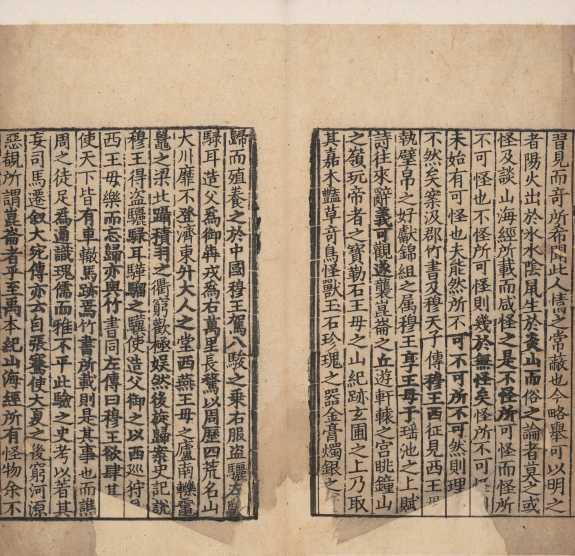 習見而奇所希聞此人情之常蔽也今略舉可以明之
者陽火出於氷水陰鼠生於炎山而俗之論者莫之或
怪及談山海經所載而咸怪之是不怪所可怪而怪所
不可怪也不怪所可怪則幾於無怪矣怪所不可怪
未始有可怪也夫能然所不可不可所不可然則理
不然矣案汲郡竹書及穆天子傳穆王西征見西王
執璧帛之好獻錦組之属穆王享王母于瑶池之上賦
詩往來辭義可觀遂襲崑崙之丘遊軒轅之宮眺鍾山
之嶺玩帝者之寶勒石王母之山紀跡玄圃之上乃取
其嘉木豔草奇鳥怪獸玉石珍瑰之器金膏燭銀之
歸而殖養之於中國穆王駕八駿之乗右服盗驪左
騄耳造父為御犇戎為右萬里長騖以周歷四荒名山
大川靡不登濟東升大人之堂西燕王母之廬南轢黿
鼉之梁北躡積羽之衢窮歡極娱然後旋歸案史記說
穆王得盗驪騄耳驊騮之驥使造父御之以西廵狩
西王母樂而忘歸亦與竹書同左傳曰穆王欲肆其
使天下皆有車轍馬跡焉竹書所載則是其事也而譙
周之徒足為通識瑰儒而雅不平此驗之史考以著其
妄司馬遷叙大宛傳亦云自張騫使大夏之後窮河源
惡覩所謂崑崙者乎至禹本紀山海經所有怪物余不